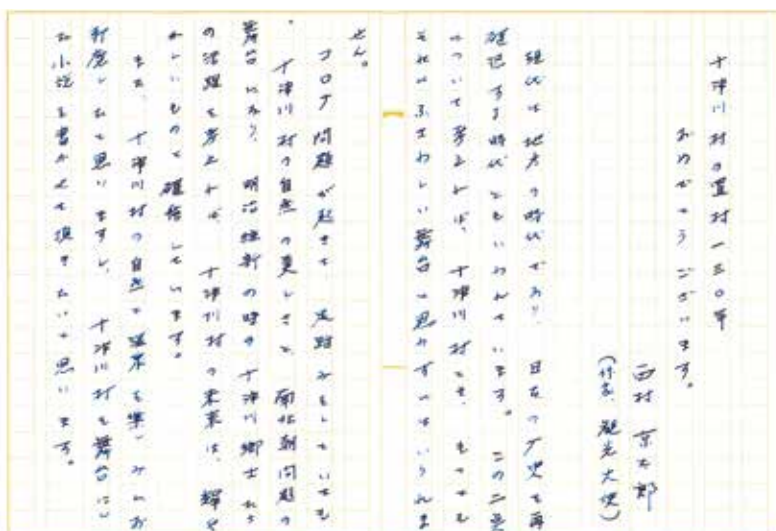 十津川村の置村一三〇年
おめでとうございます。
西村 京太郎
(作家、観光大使)
現代は地方の時代であり、日本の歴史を再
確認する時代ともいわれています。この二点
について考えれば、十津川村こそ、もっとも
それにふさわしい舞台と思わずにはいられま
せん。
コロナ問題が起きて、足踏みをしていても
、十津川村の自然の美しさと、南北朝問題の
舞台になり、明治維新の時の十津川郷士たち
の活躍を考えれば、十津川村の未来は、輝や
かしいものと確信しています。
また、十津川村の自然と温泉を楽しみにお
邪魔したいと思いますし、十津川村を舞台にし
た小説を書かせて頂きたいと思います。